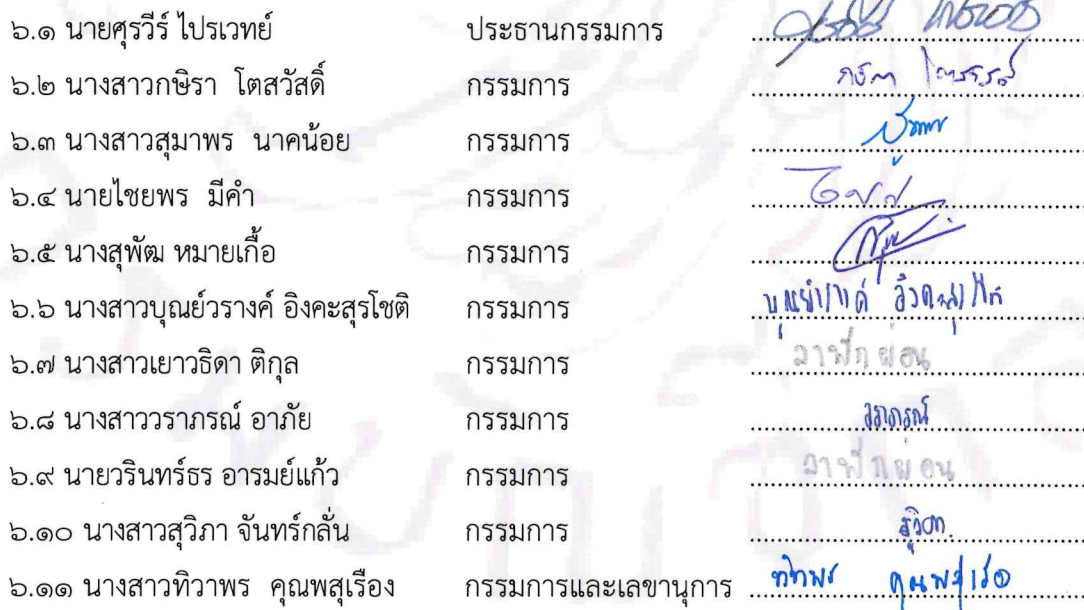 ๖.๑ นายศุรวีร์ ไปรเวทย์ ประธานกรรมการ
๖.๒ นางสาวกษิรา โตสวัสดิ์ กรรมการ
๖.๓ นางสาวสุมาพร นาคน้อย กรรมการ
๖.๔ นายไชยพร มีคำ กรรมการ
๖.๕ นางสุพัฒ หมายเกื้อ กรรมการ
๖.๖ นางสาวบุณย์วรางค์ อิงคะสุรโชติ กรรมการ บุณย์วรางค์ อิงคะสุรโชติ
๖.๗ นางสาวเยาวธิดา ติกุล กรรมการ ลาพักผ่อน
๖.๘ นางสาววราภรณ์ อาภัย กรรมการ วราภรณ์
๖.๙ นายวรินทร์ธร อารมย์แก้ว กรรมการ ลาพักผ่อน
๖.๑๐ นางสาวสุวิภา จันทร์กลั่น กรรมการ สุวิภา
๖.๑๑ นางสาวทิวาพร คุณพสุเรือง กรรมการและเลขานุการ ทิวาพร คุณพสุเรือง